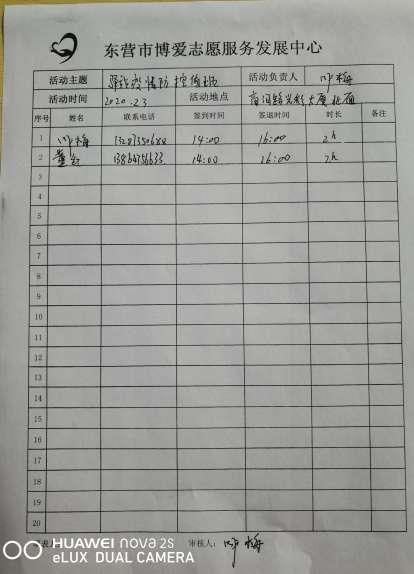 东营市博爱志愿服务发展中心
活动主题 疫情防控值班 活动负责人 叶梅
活动时间 2020.2.3 活动地点 大厦北面
序号 姓名 联系电话 签到时间 签退时间 时长 备注
1 叶梅 14:00 16:00 2h
2 13864756633 14:00 16:00 2h
3
4
5
6
7
8
9
10
11
12
13
14
15
16
17
18
19
20
审核人: 叶梅
HUAWEI nova 2s
eLUX DUAL CAMERA